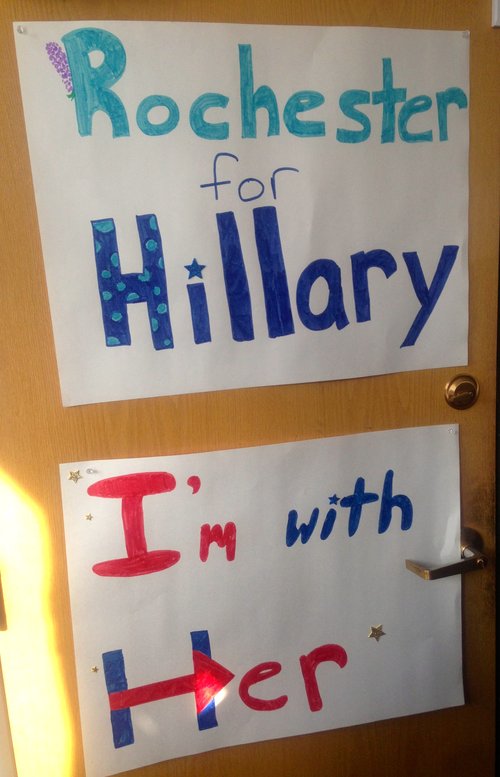 Rochester
for
Hillary
I'm with
Her